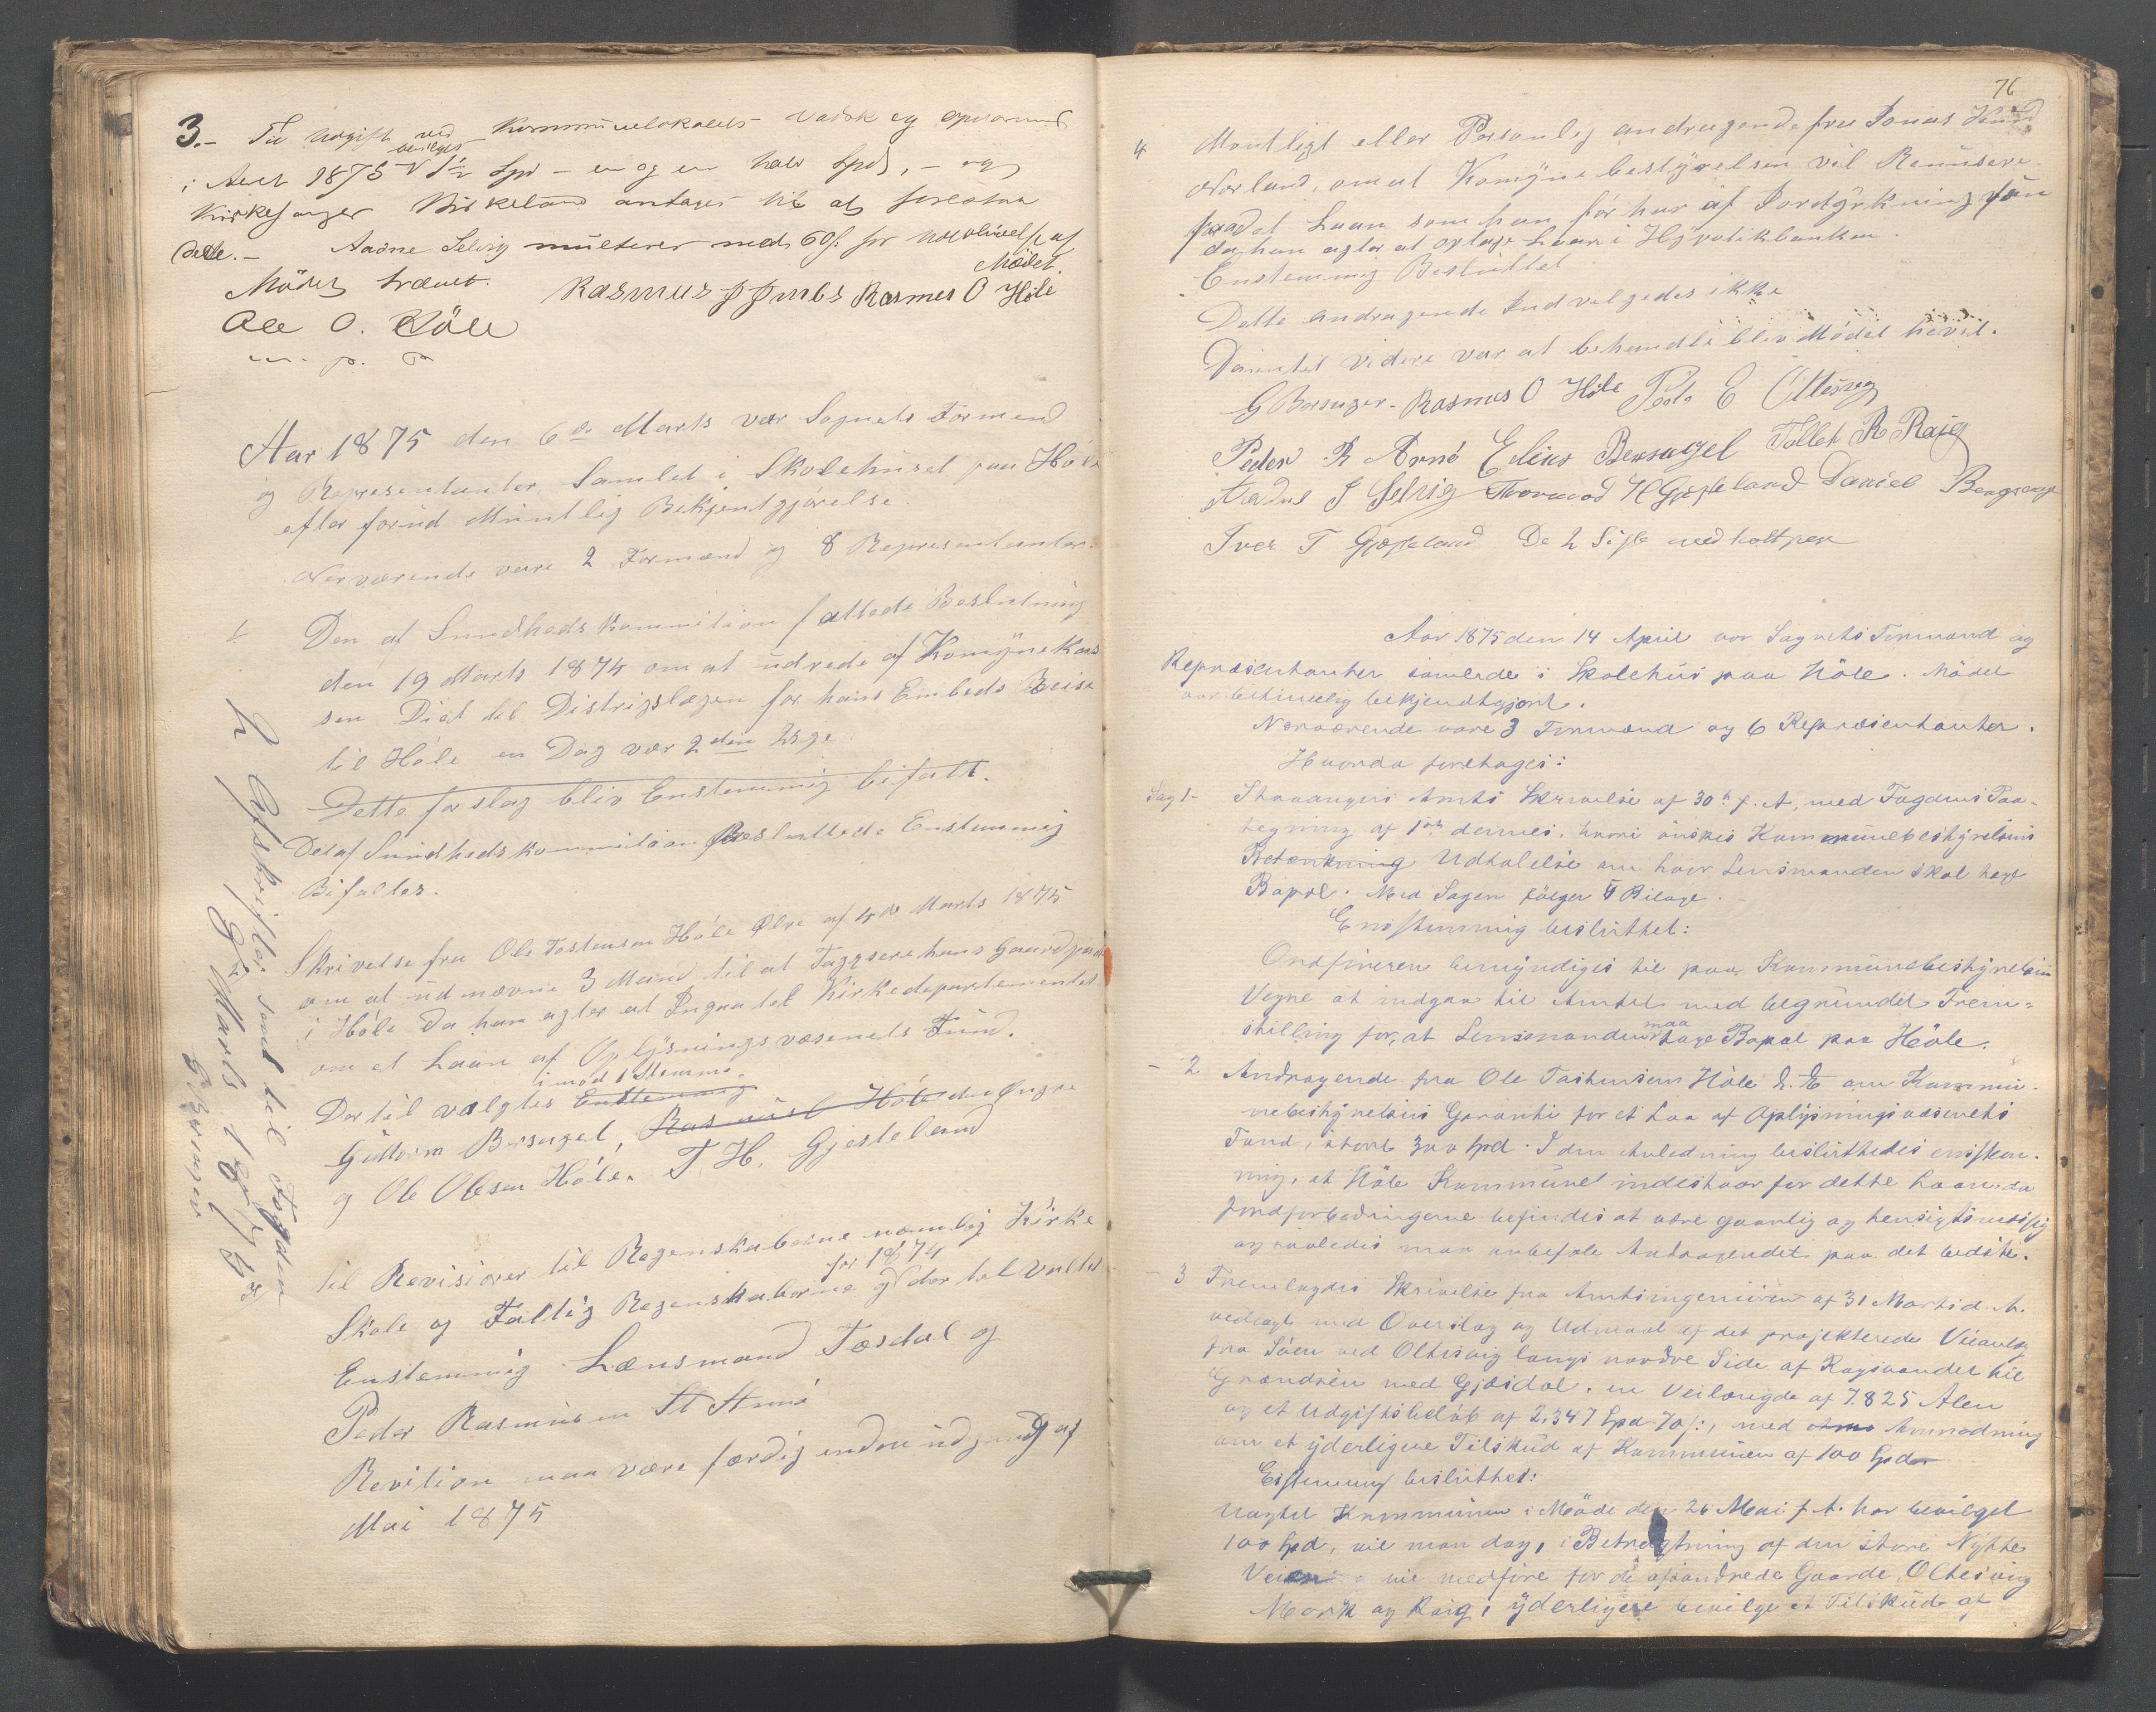 3.- Til Udgift ved Kommunelokalets Vadsk og
i Aaret 1875 bevilges 1½ Spd - en og en halv Spd, - og
Kirkesanger Birkeland antages til at forestaa
dette. - Aadne Selvig mulkteres med 60 s. for Udeblivelse af
Mödet.
Mödet hævet. Rasmus Rasmus O Höle
Ole O. Höle
m. p. P
Aar 1875 den 6te Marts var Sognets Formend
og Representanter Samlet i Skolehuset paa Höle
efter forud Muntlig Bekjentgjörelse.
Nerværende vare 2 Formænd og 8 Representanter.
1 Den af Sundhedskommition fattede Beslutning
den 19 Marts 1874 om at udrede af Komynekas
sen Diet til Distrigslægen for hans Embeds Reise
til Höle en Dag vær 2den Uge
Dette forslag blev Enstemmig bifalt.
Det af Sundhedskommition Besluttede Enstemmig
Bifaltes.
Skrivelse fra Ole Tostensen Höle Övre af 4de Marts 1875
om at udnævne 3 Mænd til at Taggsere hans Gaardpart
i Höle da han agter at Ingaa til Kirkedepartementet
om et Laan af Oplysningsvæsenets Fund.
imod 1 Stemme.
Der til valgtes Enstemmig
Guttorm Bersagel, Rasmus L Höle den Yngre
og Ole Olesen Höle. T. H. Gjesteland
til Revisiører til Regenskaberne nämlig Kirke
for 1874
Skole og Fattig Regenskaberne og der til Valtes
Enstemmig Lænsmand Tæsdal og
Peder Rasmusen Arnö
Revition maa være færdig inden udgang af
Mai 1875
2 Afskrifter sent til Fogden
d. Marts 1875
G Bersagel
76
4 Montligt eller Personlig andragende fra Jonas
Norland, om at Komynebestyrelsen vil Renunsere
paa det Laan som han för har af Jordyrkning
da han agter at optage Laan i Hypotikbanken.
Enstemmig Besluttet
Dette andragende Indvelgedes ikke
Daintet videre var at behandle blev Mödet hevet.
G Bersagel. Rasmus O Höle Peder E Oltesvig
Peder R Arnö Elias Bersagel Tollek R Raig
Aadne J Selvig Thormod H Gjesteland Daniel Bersagel
Iver T Gjesteland De 2 Siste med holt pen
Aar 1875 den 14 April var Sognets Formænd og
Repræsentanter samlede i Skolehus paa Höle. Mödet
var betimelig bekjendtgjort.
Nærværende vare 3 Formænd og 6 Repræsentanter.
Hvorda foretoges:
Sag 1- Stavangers Amts Skrivelse af 30te f. A, med Fogdens Paa-
tegning af 1ste dennes, hvori önskes Kommunebestyrelsens
Betænkning Udtalelse om hvor Lensmanden skal have
Bopæl. Med Sagen fölger 4 Bilage.
Enstemmig besluttet:
Ordföreren bemyndiges til paa Kommunebestyrelsens
Vegne at indgaa til Amtet med begrundet Frem-
stilling for, at Lensmanden maa have Bopæl paa Höle.
- 2 Andragende fra Ole Tostensen Höle L. E om Kommu-
nebestyrelsens Garanti for et Laa af Oplysningsvæsenets
Fond, stort 300 Spd. I den Anledning besluttedes enstem-
mig, at Höle Kommune indestaar for dette Laan da
Jordforbedringerne befindes at være gavnlig og hensigtsmessig
og saaledes maa anbefale Andragendet paa det bedste.
- 3 Fremlagdes Skrivelse fra Amtsingeniören af 31 Marts d. A.
vedlagt med Overslag og Udmaal af det projekterede Veianlæg
fra Söen ved Oltesvig langs nordre Side af Ragsvandet til
Grændsen med Gjesdal, en Veilængde af 7.825 Alen
og et Udgiftsbelöb af 2.347 Spd 70 s:, med Anmodning
om et yderligere Tilskud af Kommunen af 100 Spd
Enstemmig besluttet:
Uagtet Kommunen i Möde den 26 Mai f. A. har bevilget
100 Spd, vil man dog, i Betragtning af den store Nytte
Veien vil medföre for de Gaarde, Oltesvig
Mork og Raig, yderligere bevilge et Tilskud af